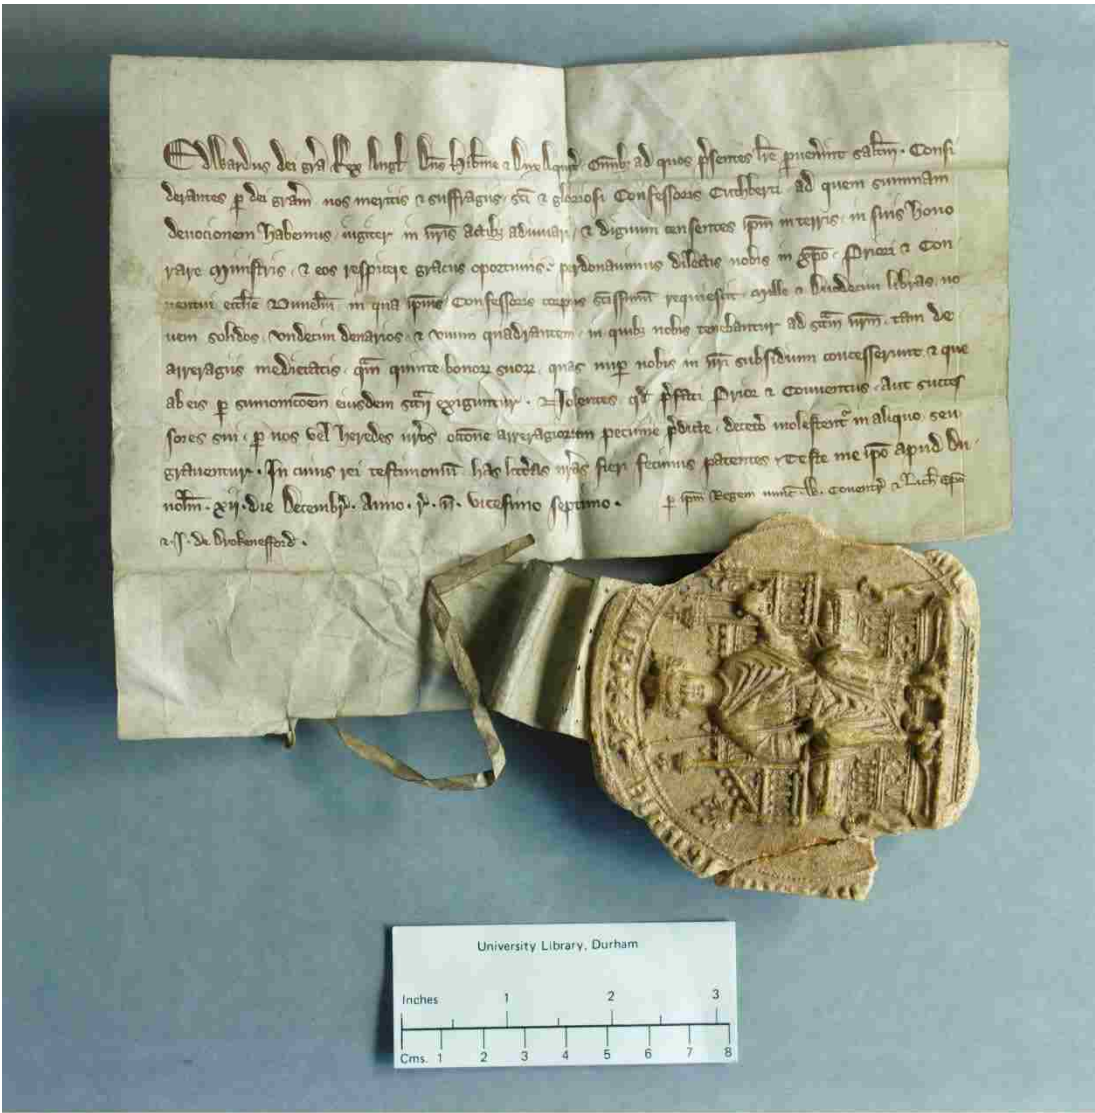 Edwardus dei gr̄a Rex Angl̄ Dn̄s Hib̄nie ⁊ Dux Aquit̄ Om̄ib; ad quos p̄sentes l̄re p̄uen̄int sal̄tm · Consi
derantes p̱ dei gr̄am nos meritis ⁊ suffragiis sc̄i ⁊ gloriosi Confessoris Cuthberti ad quem summam
deuocionem habemus iugiter in nr̄is actib; adiuuari ⁊ dignum censentes ip̄m in terris in suis hono
rare ministris ⁊ eos respicere graciis oportunis perdonauimus dilectis nobis in xp̄o Priori ⁊ Con
uentui eccl̄ie Dunelm̄ in qua ip̄ius Confessoris corpus sc̄issimū requiescit Mille ⁊ Duodecim libras no
uem solidos vndecim denarios ⁊ vnum quadrantem in quib; nobis tenebantur ad sc̄cm nr̄m tam de
arreragiis medietatis qm̄ quinte bonoꝝ suoꝝ quas nup̱ nobis in nr̄i subsidium concesserunt ⁊ que
ab eis p̱ sumonic̄oem eiusdem sc̄cii exiguntur · Nolentes qd̄ p̄fati Prior ⁊ Conuentus Aut succes
sores sui p̱ nos vel heredes nr̄os occ̄one arreragiorum pecunie p̄dicte decet̄o molestent᷑ in aliquo seu
grauentur · In cuius rei testimoniū has litt̄as nr̄as fieri fecimus patentes Teste me ip̄o apud Du
nolm̄ · xij · die Decembr̄ · Anno · r̄ · n̄ · vicesimo septimo · p̱ ip̄m Regem nunc̄ Couentr̄ ⁊ Lich̄ Ep̄m
⁊ · J · de Drokenefford ·
University Library, Durham
Inches 1 2 3
Cms. 1 2 3 4 5 6 7 8